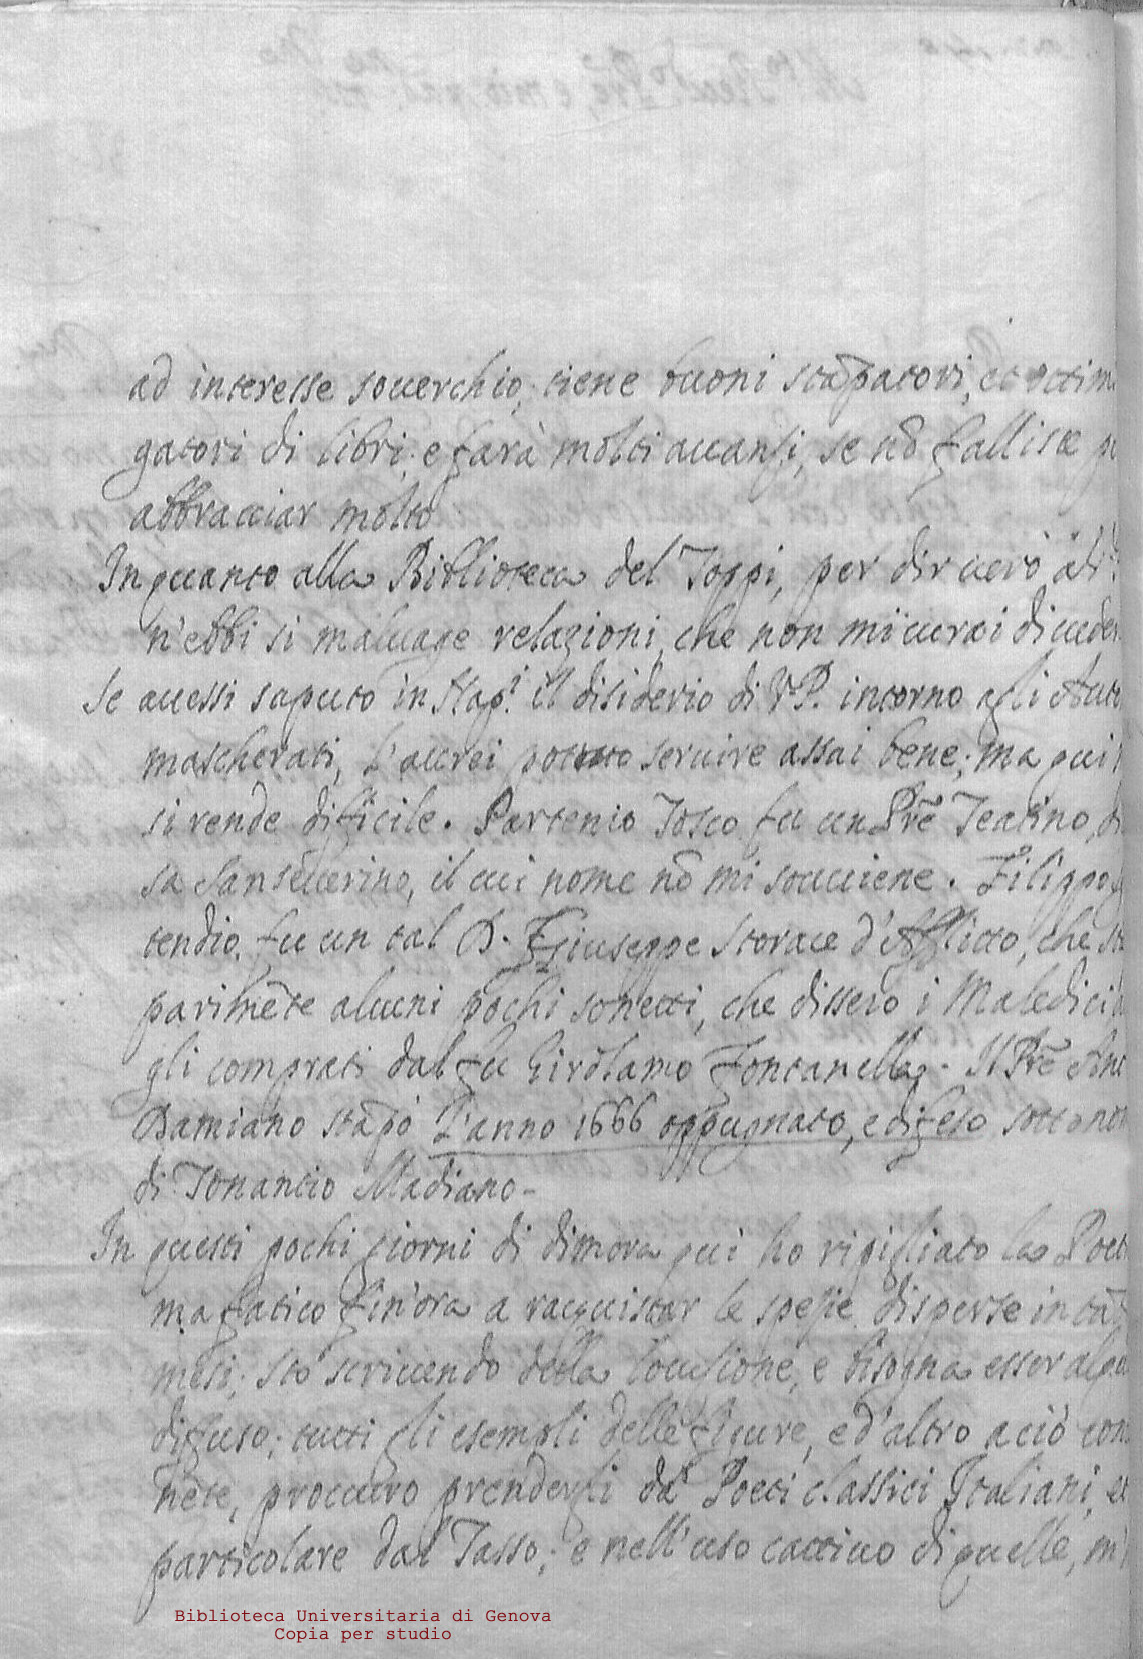 ad interesse souerchio; tiene buoni stāpatori, et ottim
gatori di libri; e farà molti auanzi, se nō fallisce
abbracciar molto
In quanto alla Biblioteca del Toppi, per dir uero
n'ebbi si maluage relazioni, che non mi curai di ueder
Se auessi saputo in Nap.i il disiderio di V.P. intorno agli Auto
mascherati, l'aurei potuto seruire assai bene; ma qui
si rende difficile. Partenio Tosco fu un Prē Teatino,
sa Sanseuerino, il cui nome nō mi souuiene. Filippo
tendio, fu un tal D. Giuseppe Storace d'Afflitto, che
parimēte alcuni pochi sonetti, che dissero i Maledici
gli comprati dal fu Girolamo Fontanella. Il Prē Ant
Damiano stāpò L'anno 1666 oppugnato, e difeso sotto no
di Tonancio Madiano.
In questi pochi giorni di dimora qui ho ripigliato la Poet
ma fatico fin'ora a racquistar le spezie disperse in tā
mesi; sto scriuendo della locuzione, e bisogna esser alqua
diffuso; tutti gli esempli delle figure, e d'altro a ciò con
nēte, proccuro prendergli da' Poeti classici Italiani, et
particolare dal Tasso; e nell'uso cattiuo di quelle, m'
Biblioteca Universitaria di Genova
Copia per studio